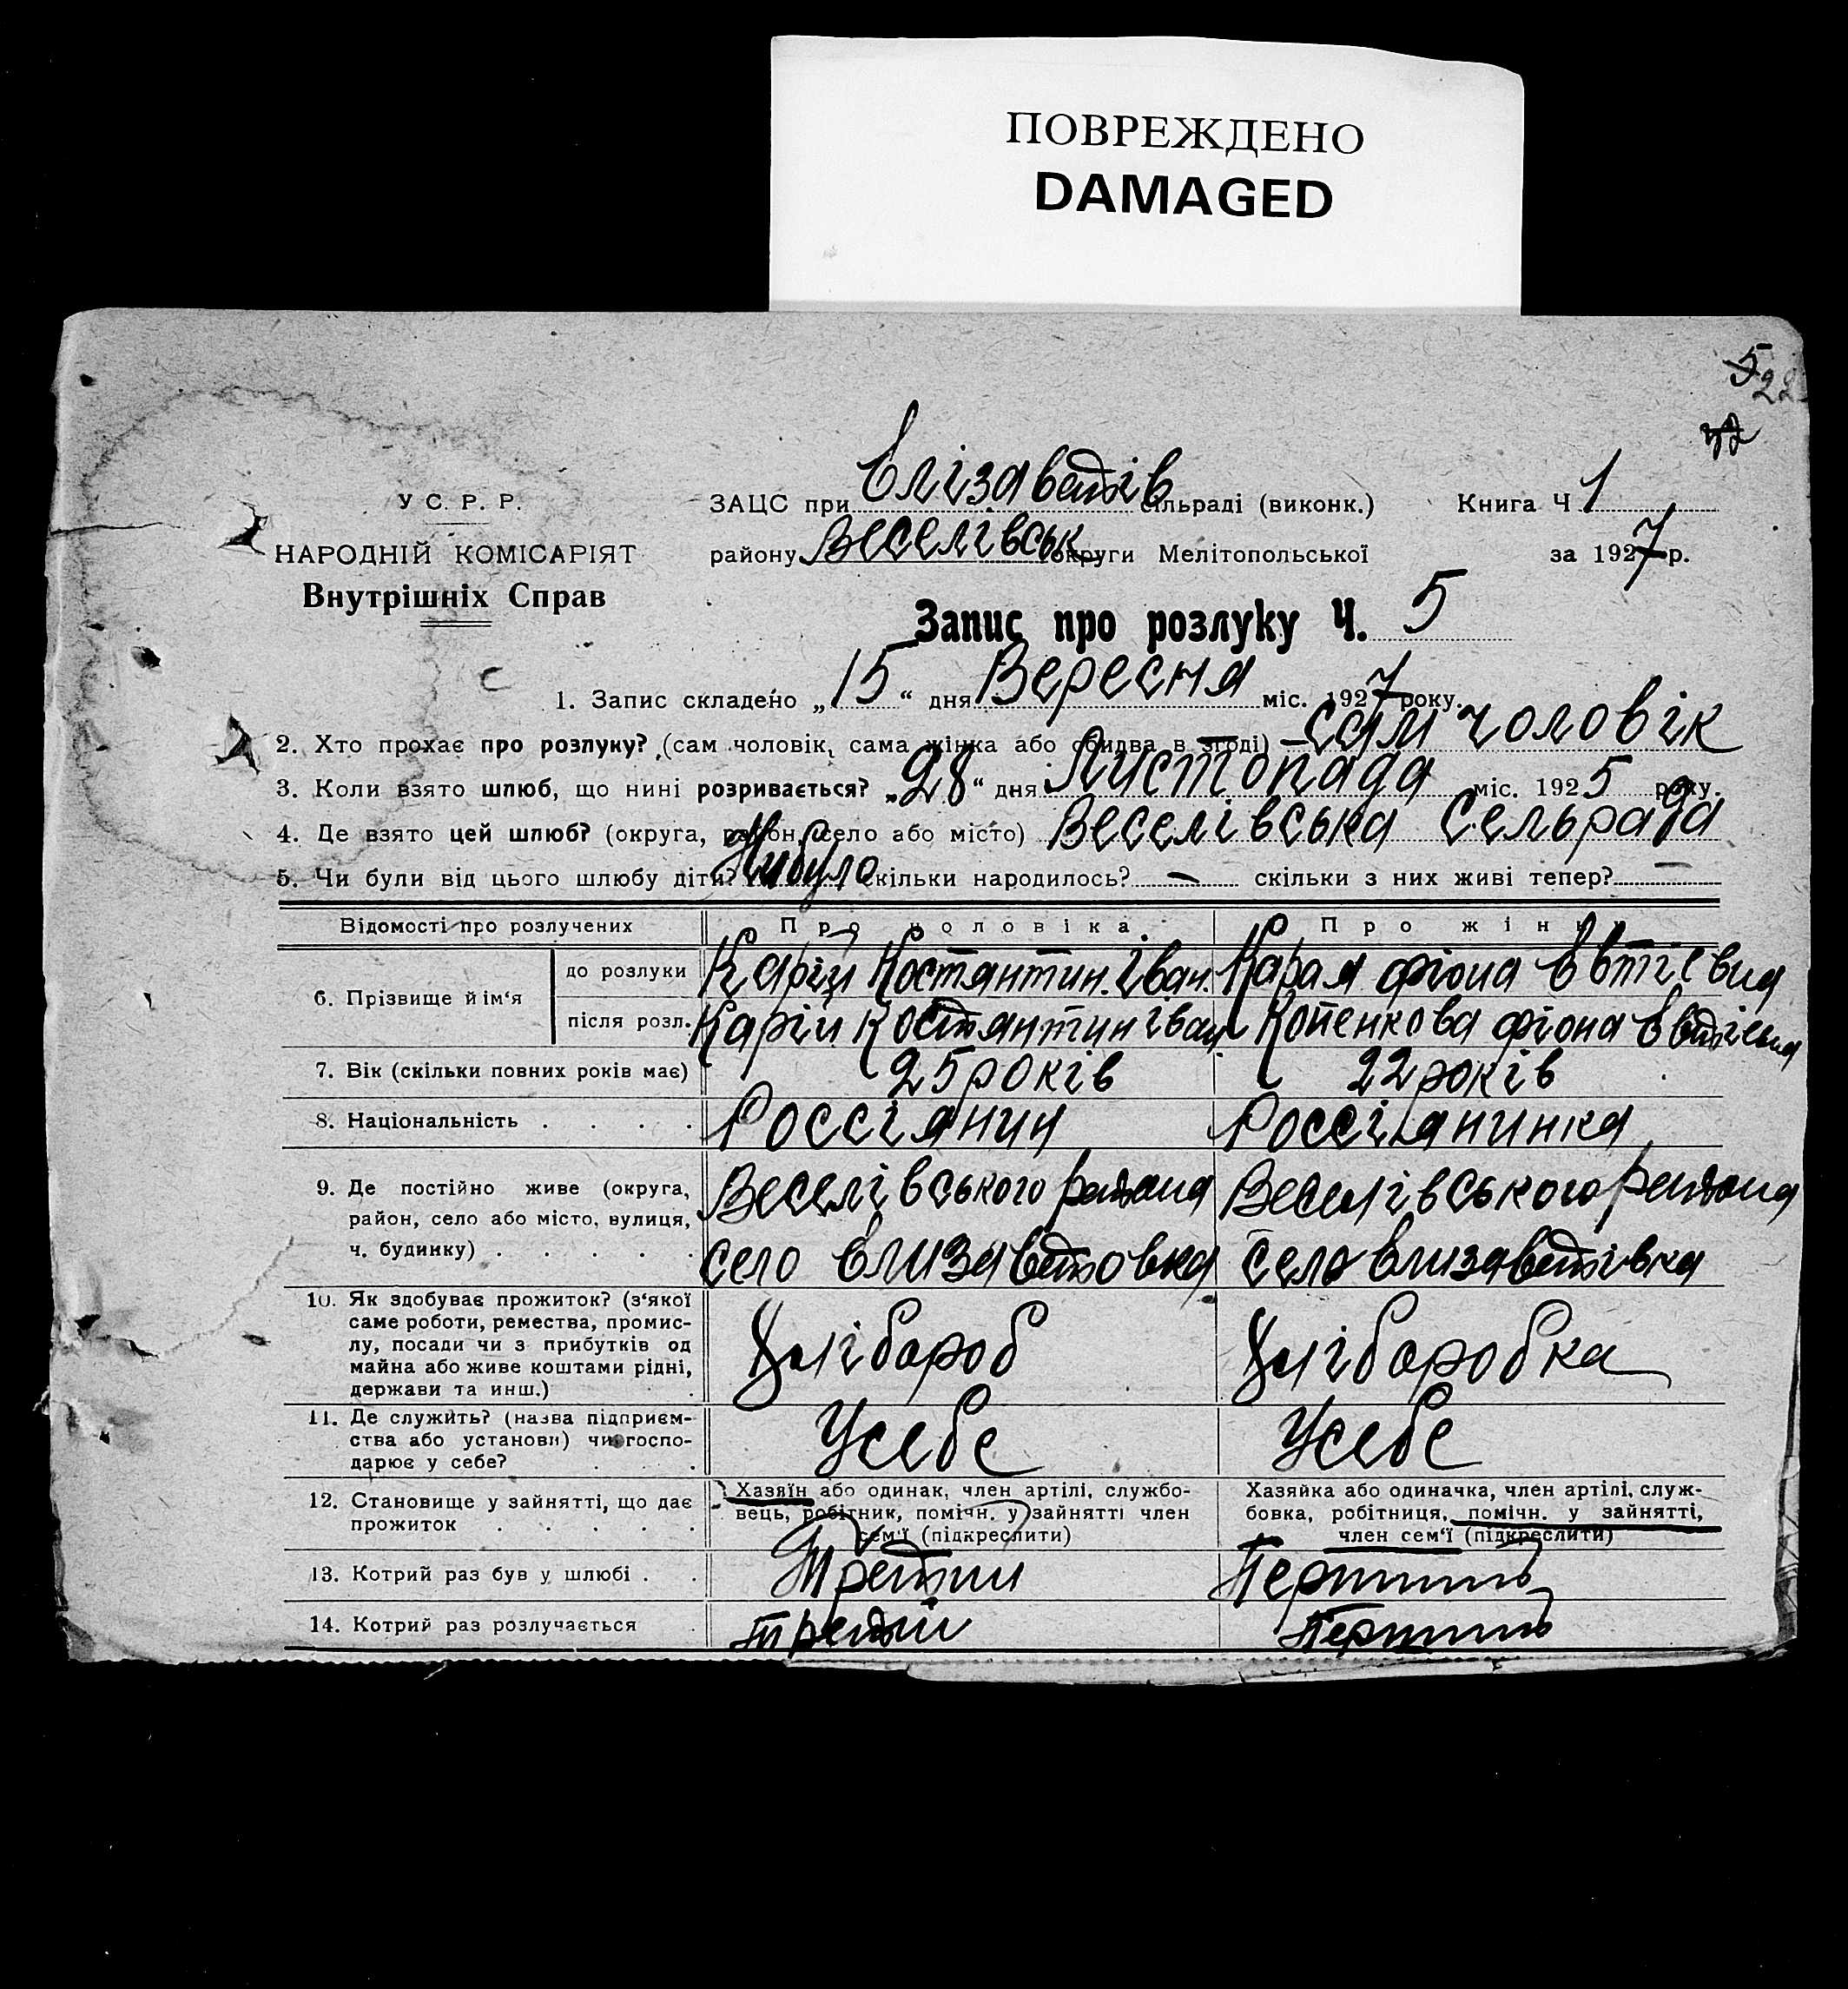 ПОВРЕЖДЕНО
DAMAGED
5
22
У С. Р. Р.
НАРОДНІЙ КОМІСАРІЯТ
Внутрішніх Справ
ЗАЦС при Єлізаветів сільраді (виконк.) Книга Ч 1
району Веселівськ округи Мелітопольської за 1927 р.
Запис про розлуку Ч. 5
1. Запис складено „15“ дня Вересня міс. 1927 року.
2. Хто прохає про розлуку? (сам чоловік, сама жінка або обидва в згоді) сам чоловік
3. Коли взято шлюб, що нині розривається? „28“ дня Листопада міс. 1925 року.
4. Де взято цей шлюб? (округа, район, село або місто) Веселівська Сельрада
5. Чи були від цього шлюбу діти? Нибуло скільки народилось? — скільки з них живі тепер? —
Відомості про розлучених Про чоловіка. Про жінку
6. Прізвище й ім‘я до розлуки Карій Костянтин. Іван. Карая Фіона Євтієвна
після розл. Карій Костянтин Іван Копенкова Фіона Євтієвна
7. Вік (скільки повних років має) 25 років 22 років
8. Національність . . . . Россіянин Россіянинка
9. Де постійно живе (округа, район, село або місто, вулиця, ч. будинку) . . . . . Веселівського района село Єлизаветовка Веселівського района село Єлизаветівка
10. Як здобуває прожиток? (з‘якої саме роботи, ремества, промислу, посади чи з прибутків од майна або живе коштами рідні, держави та инш.) . Хлібороб Хліборобка
11. Де служить? (назва підприємства або установи) чи господарює у себе? . . Усебе Усебе
12. Становище у зайнятті, що дає прожиток . . . . . Хазяїн або одинак, член артілі, службовець, робітник, помічн. у зайнятті член сем‘ї (підкреслити) Хазяйка або одиначка, член артілі, службовка, робітниця, помічн. у зайнятті, член сем‘ї (підкреслити)
13. Котрий раз був у шлюбі . . Третий
14. Котрий раз розлучається . третій